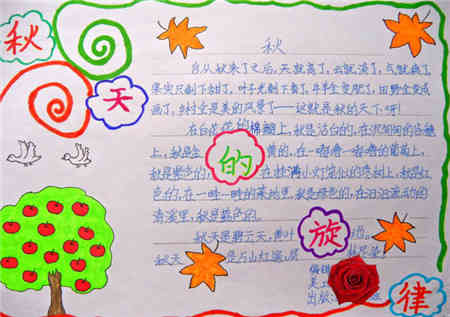 秋
天
的
旋
律
秋
自从秋来了之后,天就高了,云就淡了,气就爽了
果实只剩下甜了,叶子光剩下黄了,牛羊全变肥了,田野全变成
画了,乡村全是美的风景了——这就是秋的天下呀!
在白花花的棉朵上,秋是洁白的,在沉甸甸的谷穗
上,秋是金黄的,在一嘟噜一嘟噜的葡萄上,
秋是紫色的,在挂满小灯笼似的枣树上,秋是红
色的,在一畦一畦的菜地里,秋是绿色的,在汩汩流动的
清溪里,秋是蓝色的。
秋天是碧云天,黄叶
秋天 是万山红遍,层林尽染!
出版: